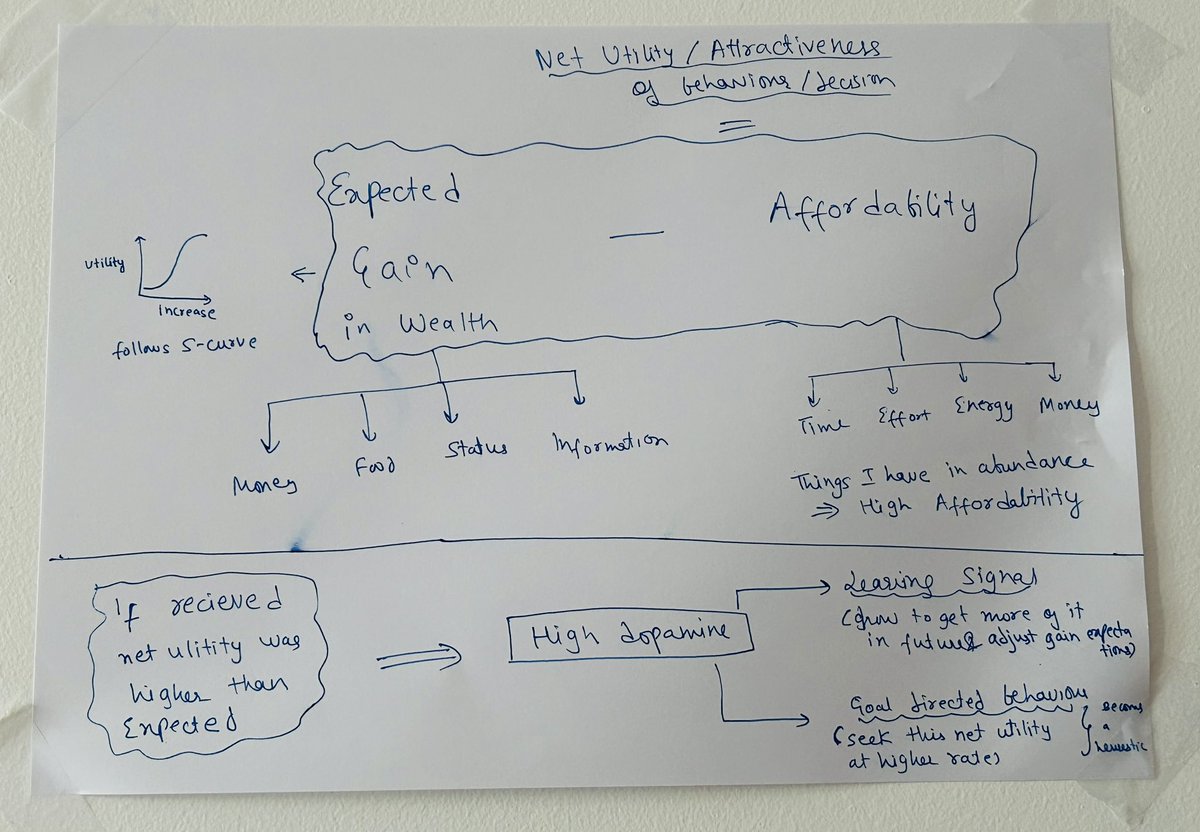 Net Utility / Attractiveness
of behaviours / decision
=
Expected
Gain
in Wealth
—
Affordability
Utility
Increase
follows S-curve
Money
Food
Status
Information
Time
Effort
Energy
Money
Things I have in abundance
⇒ High Affordability
If recieved
net ulitity was
higher than
Expected
High dopamine
Learing Signal
(how to get more of it
in future & adjust gain expecta
tions)
Goal directed behaviour
(seek this net utility
at higher rate)
become
a
heurestic